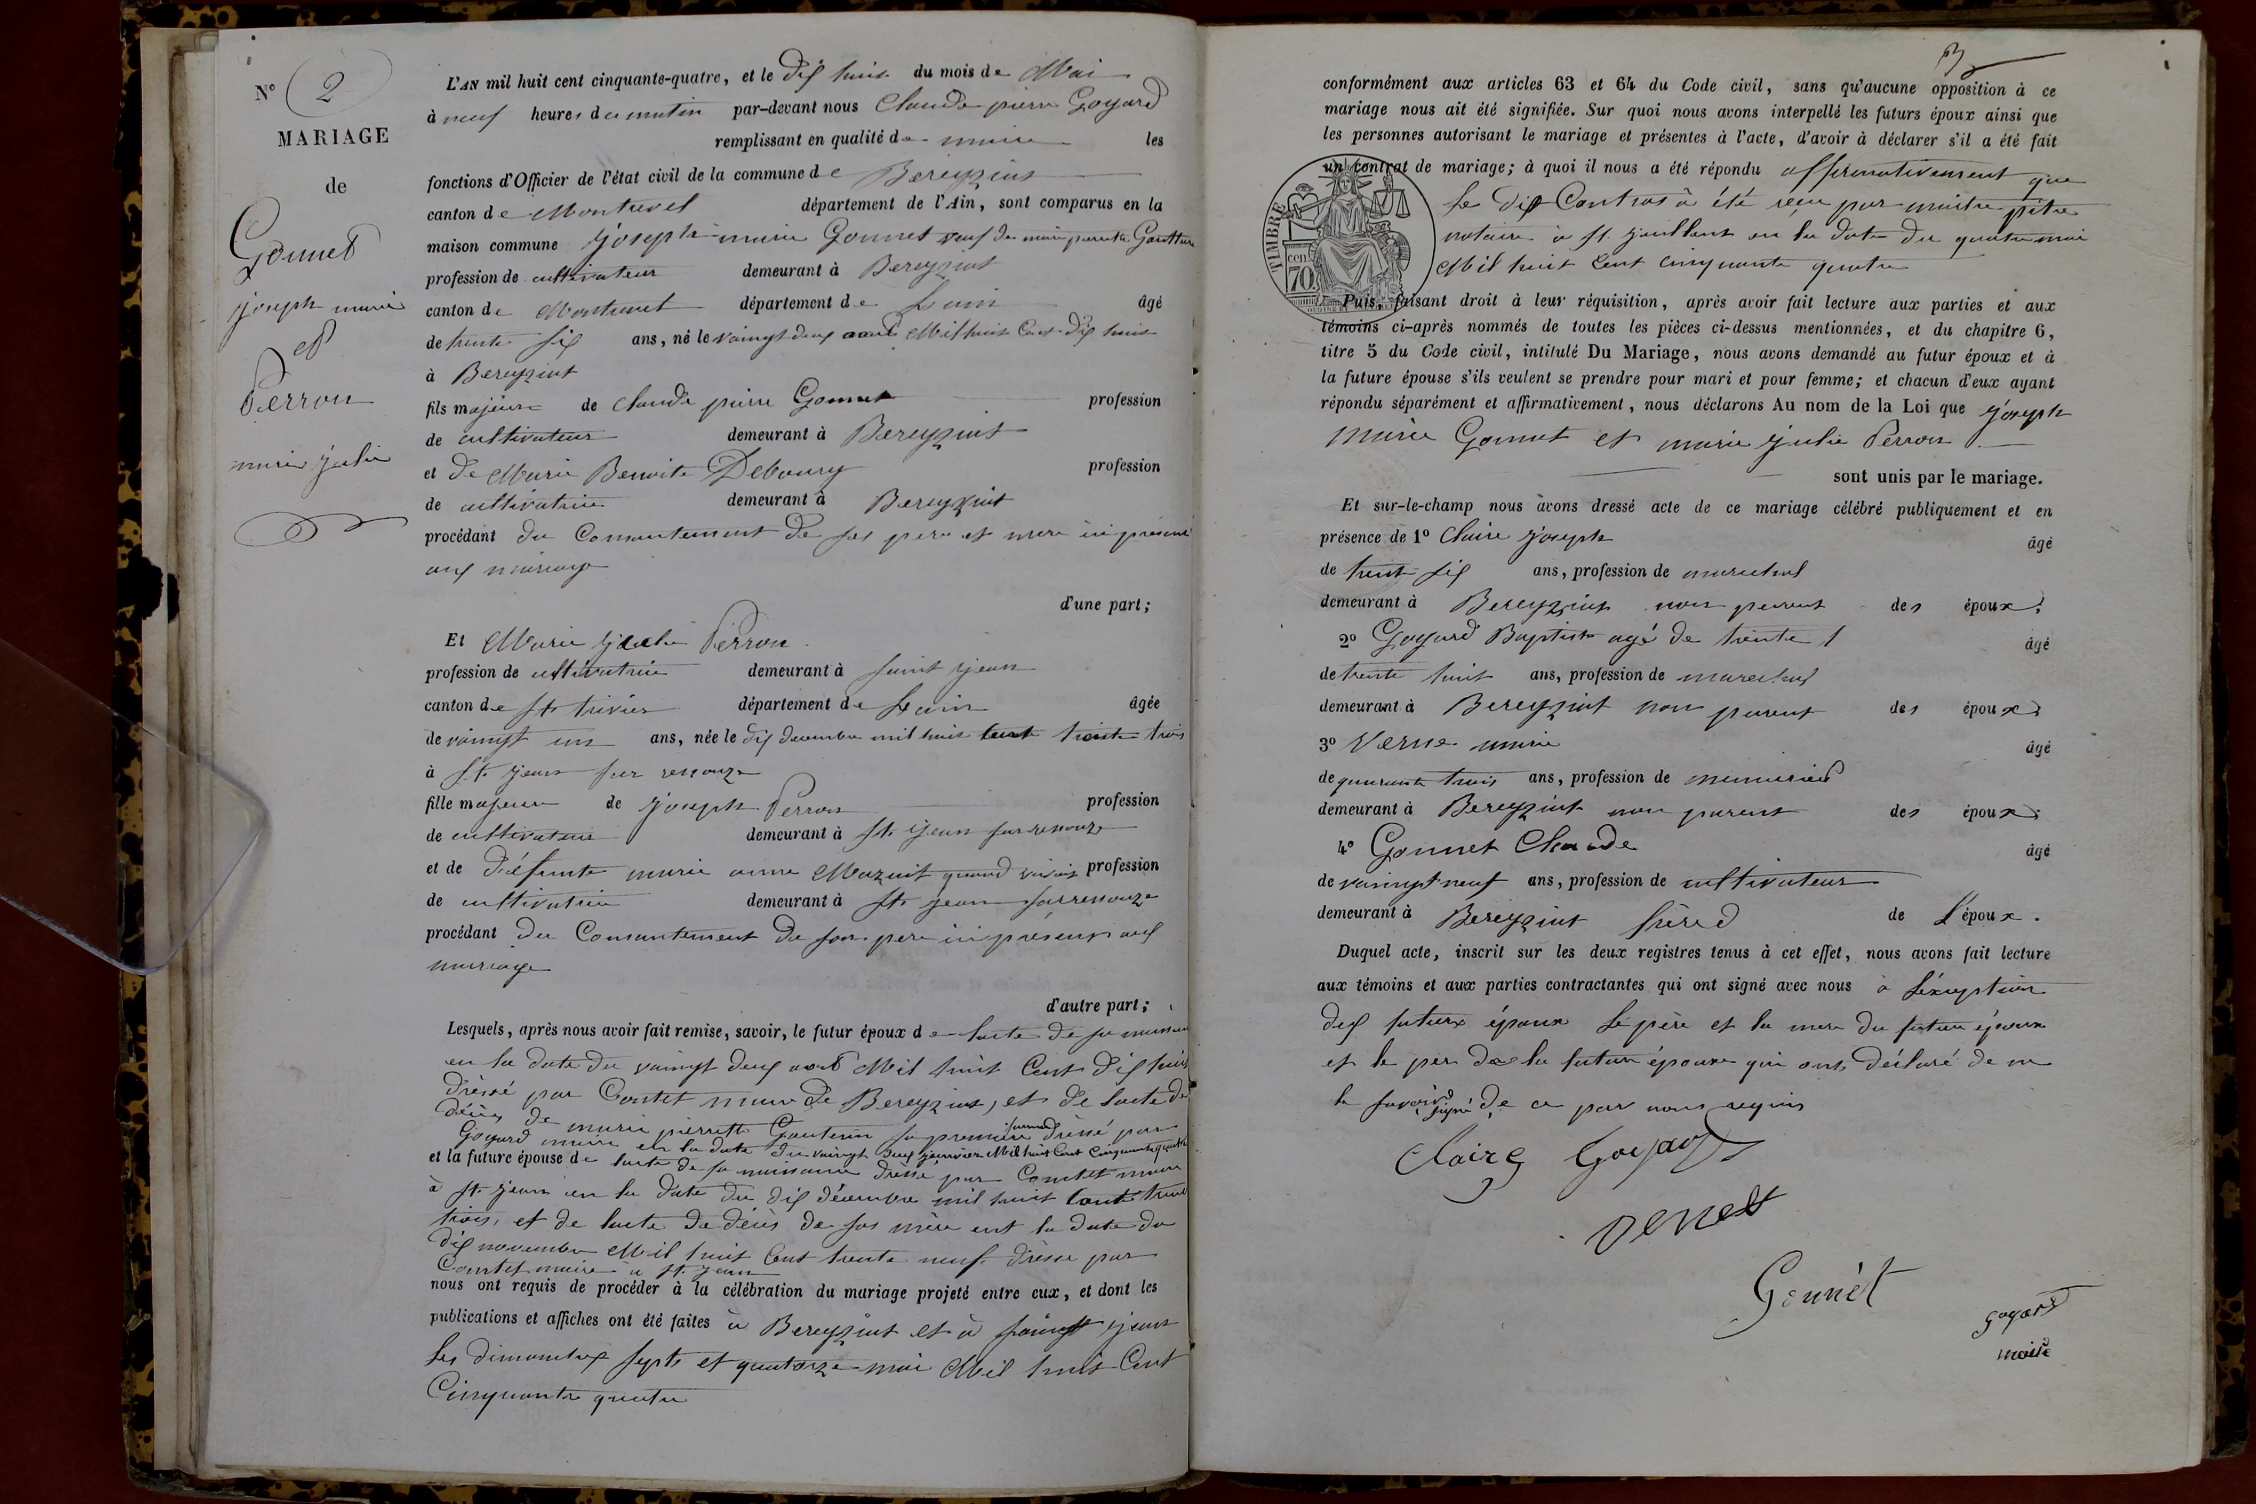 N° 2
MARIAGE
de
Gonnet
joseph marie
et
Perron
marie julie
L'AN mil huit cent cinquante-quatre, et le dix huit du mois de Mai
à neuf heures du matin par-devant nous Claude pierre Goyard
remplissant en qualité de maire les
fonctions d'Officier de l'état civil de la commune de Bereyziat
canton de Montrevel département de l'Ain, sont comparus en la
maison commune joseph marie Gonnet veuf de marie pierrette
profession de cultivateur demeurant à Bereyziat
canton de Montrevel département de Lain âgé
de trente six ans, né le vaingt deux aout Mil huit Cent dix huit
à Bereyziat
fils majeur de claude pierre Gonnet profession
de cultivateur demeurant à Bereyziat
et de Marie Benoite Deboury profession
de cultivatrice demeurant à Bereyziat
procédant du Consentement de ses pere et mere ici présent
aux mariage
d'une part;
Et Marie julie Perron
profession de cultivatrice demeurant à saint jean
canton de st trivier département de Lain âgée
de vaingt un ans, née le dix decembre mil huit cent trente trois
à st jean sur ressouze
fille majeure de joseph Perron profession
de cultivateur demeurant à st jean sur ressouze
et de défunte marie anne Mazuit quand vivait profession
de cultivatrice demeurant à st jean sur ressouze
procédant du Consentement de son pere ici présent aux
mariage
d'autre part;
Lesquels, après nous avoir fait remise, savoir, le futur époux de lacte de sa
en la date du vaingt deux aout Mil huit Cent dix huit
dréssé par Contet maire de Bereyziat, et de lacte de
décès de marie pierrette Gauterin sa première femme dréssé par
Goyard maire en la date du vaingt deux janvier Mil huit Cent Cinquante quatre
et la future épouse de lacte de sa naissance dréssé par Comtet maire
à st jean en la date du dix décembre mil huit Cent trente
trois, et de lacte de décès de sas mère ent la date du
dix novembre Mil huit Cent trente neuf drésse par
Comtet maire à st jean
nous ont requis de procéder à la célébration du mariage projeté entre eux, et dont les
publications et affiches ont été faites à Bereyziat et à saingt jean
les dimanche septs et quatorze mai Mil huit Cent
Cinquante quatre
3
conformément aux articles 63 et 64 du Code civil, sans qu'aucune opposition à ce
mariage nous ait été signifiée. Sur quoi nous avons interpellé les futurs époux ainsi que
les personnes autorisant le mariage et présentes à l'acte, d'avoir à déclarer s'il a été fait
un contrat de mariage; à quoi il nous a été répondu affirmativement que
le dis Contras à été reçu par maitre pitre
notaire à st en la date du quatre mai
Mil huit Cent Cinquante quatre
TIMBRE
70 cen.
Puis, faisant droit à leur réquisition, après avoir fait lecture aux parties et aux
témoins ci-après nommés de toutes les pièces ci-dessus mentionnées, et du chapitre 6,
titre 5 du Code civil, intitulé Du Mariage, nous avons demandé au futur époux et à
la future épouse s'ils veulent se prendre pour mari et pour femme; et chacun d'eux ayant
répondu séparément et affirmativement, nous déclarons Au nom de la Loi que joseph
Marie Gonnet et marie julie Perron
sont unis par le mariage.
Et sur-le-champ nous avons dressé acte de ce mariage célébré publiquement et en
présence de 1° Claire joseph âgé
de trent six ans, profession de marechal
demeurant à Bereyziat non parent des époux;
2° Goyard Baptiste agé de trente âgé
de trente huit ans, profession de marechal
demeurant à Bereyziat non parent des époux;
3° Verne marie âgé
de quarante trois ans, profession de menuisier
demeurant à Bereyziat non parent des époux;
4° Gonnet Claude âgé
de vaingt neuf ans, profession de cultivateur
demeurant à Béreyziat frère de L'époux.
Duquel acte, inscrit sur les deux registres tenus à cet effet, nous avons fait lecture
aux témoins et aux parties contractantes qui ont signé avec nous à léxception
des futurs époux le père et la mere du futur époux
et le per de la future épouse qui ont déclaré de ne
le savoir signé de ce par nous requis
Claire Goyard
Gonnèt
goyard
maire